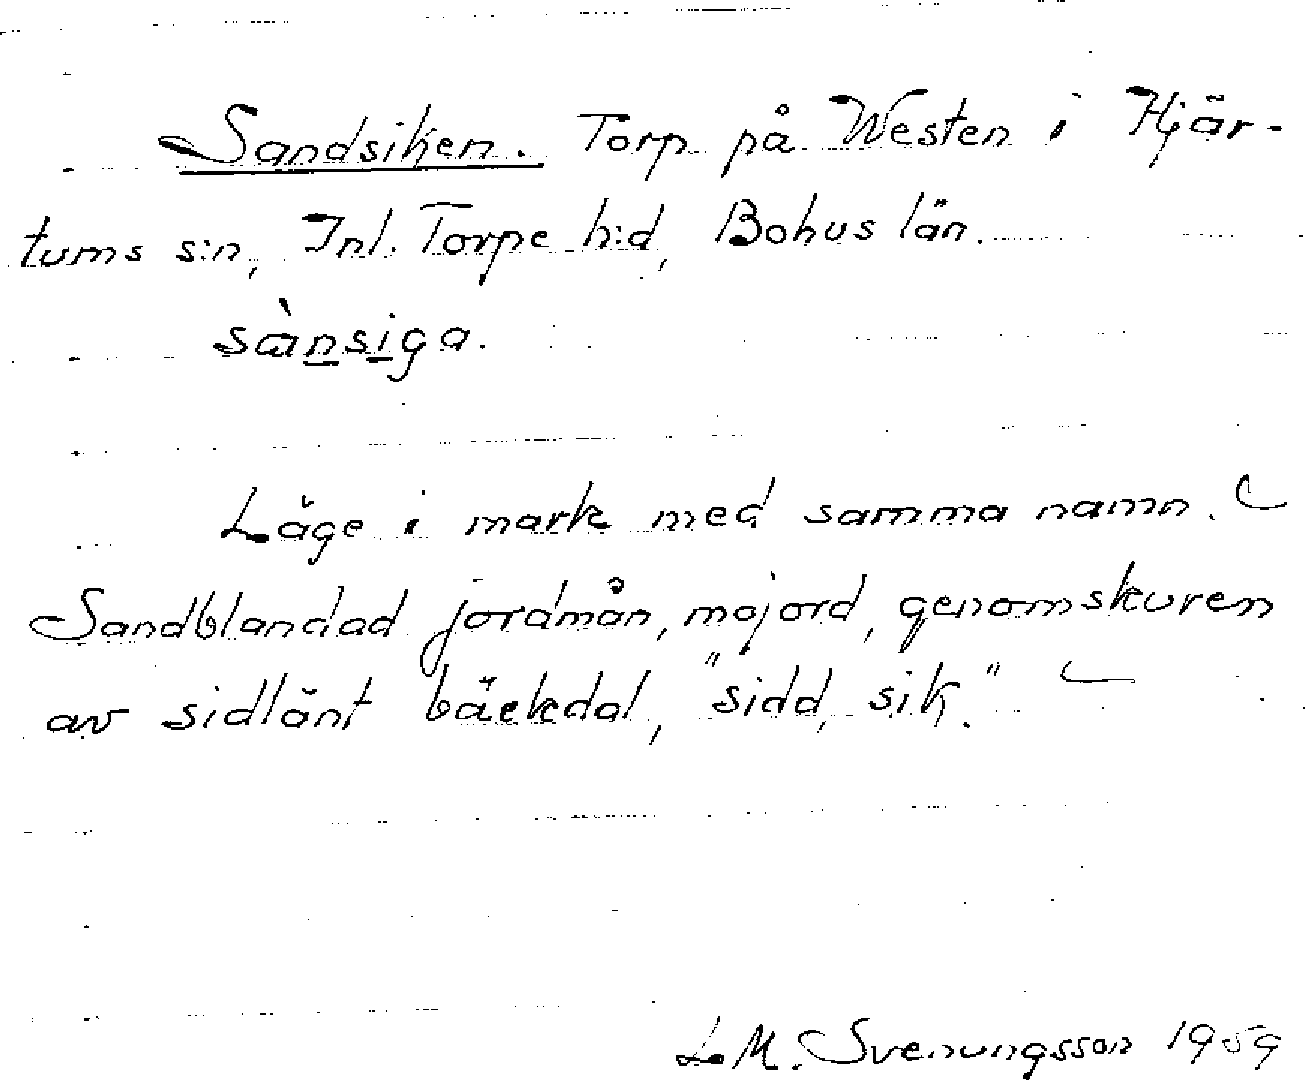 Sandsiken. Torp på Westen i Hjär-
tums s:n, Inl. Torpe h:d, Bohus län.
sànsiga.
Läge i mark med samma namn.
Sandblandad jordmån, mojord, genomskuren
av sidlänt bäckdal, "sidd, sik."
L.M. Svenungsson 1959